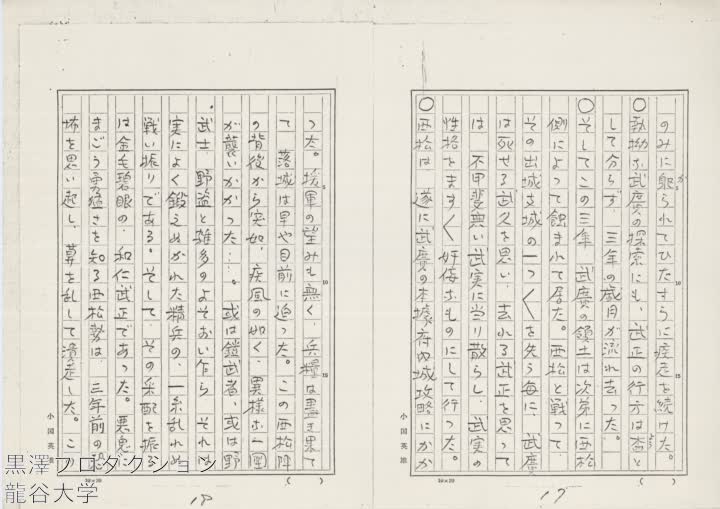 のみに駆られてひたすらに疾走を続けた。
○執拗な武廣の探索にも、武正の行方は杳と
して分らず、三年の歳月が流れ去った。
○そしてこの三年、武廣の領土は次第に西松
側によって蝕まれて居た。西松と戦って、
その出城支城の一つ〱を失う毎に、武廣
は死せる武久を思い、去れる武正を思って
は、不甲斐無い武実に当り散らし、武実の
性格をます〱奸佞なものにして行った。
○西松は、遂に武廣の本據、府内城攻略にかか
17
小国英雄
20×20
った。援軍の望みも無く、兵糧は尽き果て
て、落城は早や目前に迫った。この西松陣
の背後から突如、疾風の如く、異様な一團
が襲いかかった…。或は鎧武者、或は野
武士、野盗と雑多のよそおい乍ら、それは
実によく鍛えぬかれた精兵の、一糸乱れぬ
戦い振りである。そして、その采配を振る
は金毛碧眼の、和仁武正であった。悪鬼に
まごう勇猛さを知る西松勢は、三年前の恐
怖を思い起し、算を乱して潰走した。この
18
小国英雄
20×20
黒澤プロダクション
龍谷大学